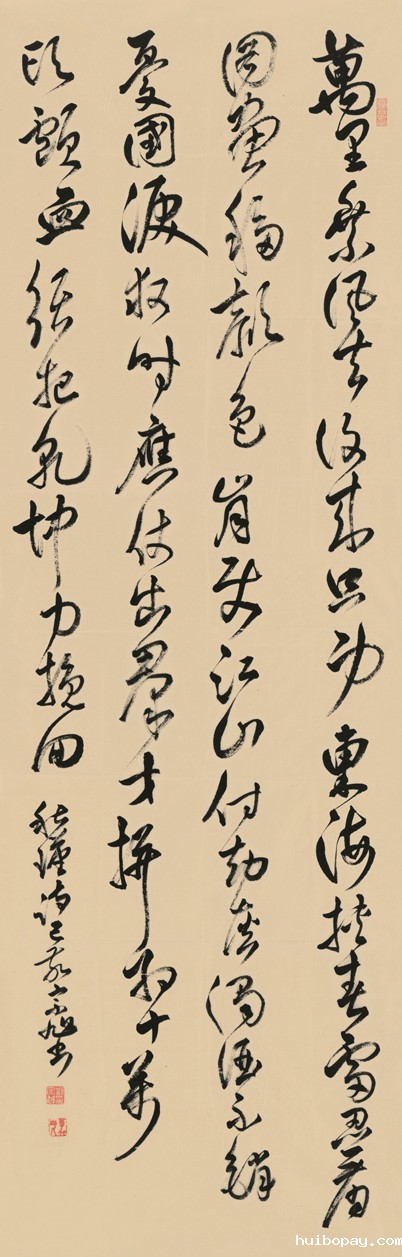 萬里乘風去復來只身東海挾春雷忍看
圖畫移顏色肯使江山付劫灰濁酒不銷
憂國淚救時應仗出羣才拼將十萬
頭顱血須把乾坤力挽回
秋瑾詩己亥書
huibopay.com